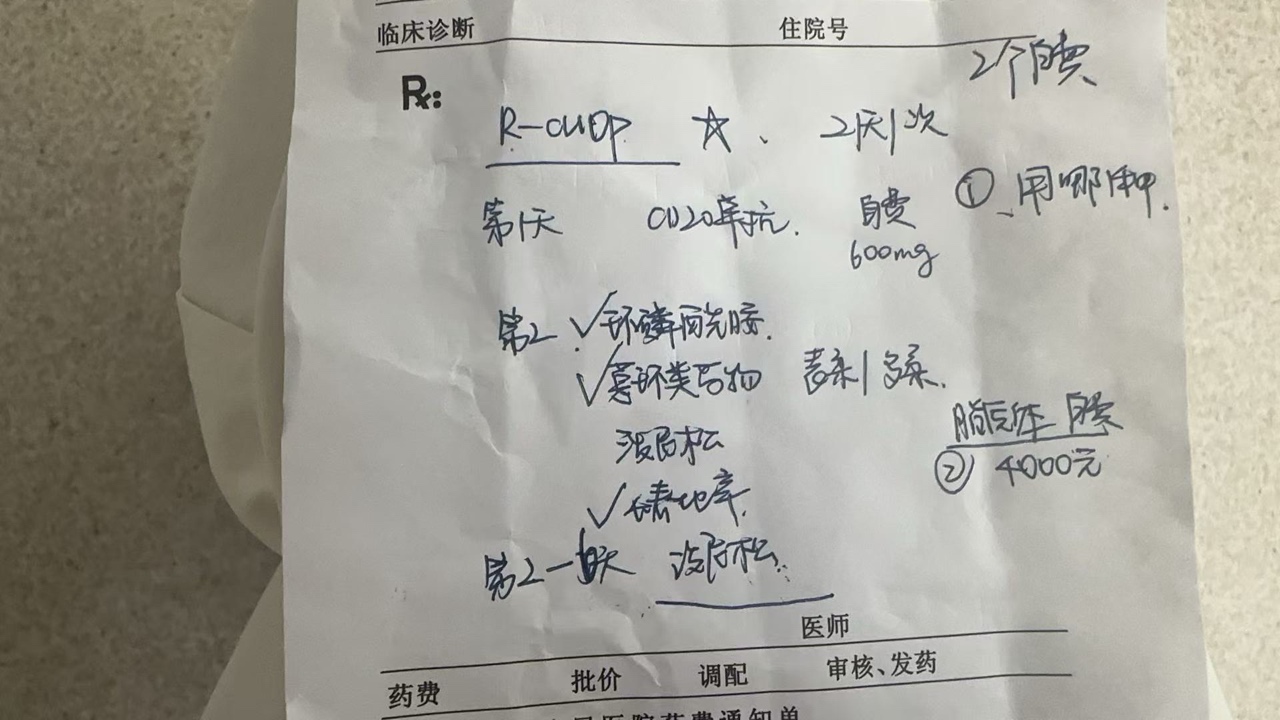 临床诊断 住院号
2个自费
Rx:
R-CHOP ☆、 2天1次
① 、用哪种.
第1天 CD20单抗. 自费
600mg
第2 ✓环磷酰胺.
✓蒽环类药物 表柔1多柔.
脂质体 自费
② 4000元
泼尼松
✓长春地辛.
第2一6天 泼尼松.
医师
药费 批价 调配 审核、发药
医院药费通知单